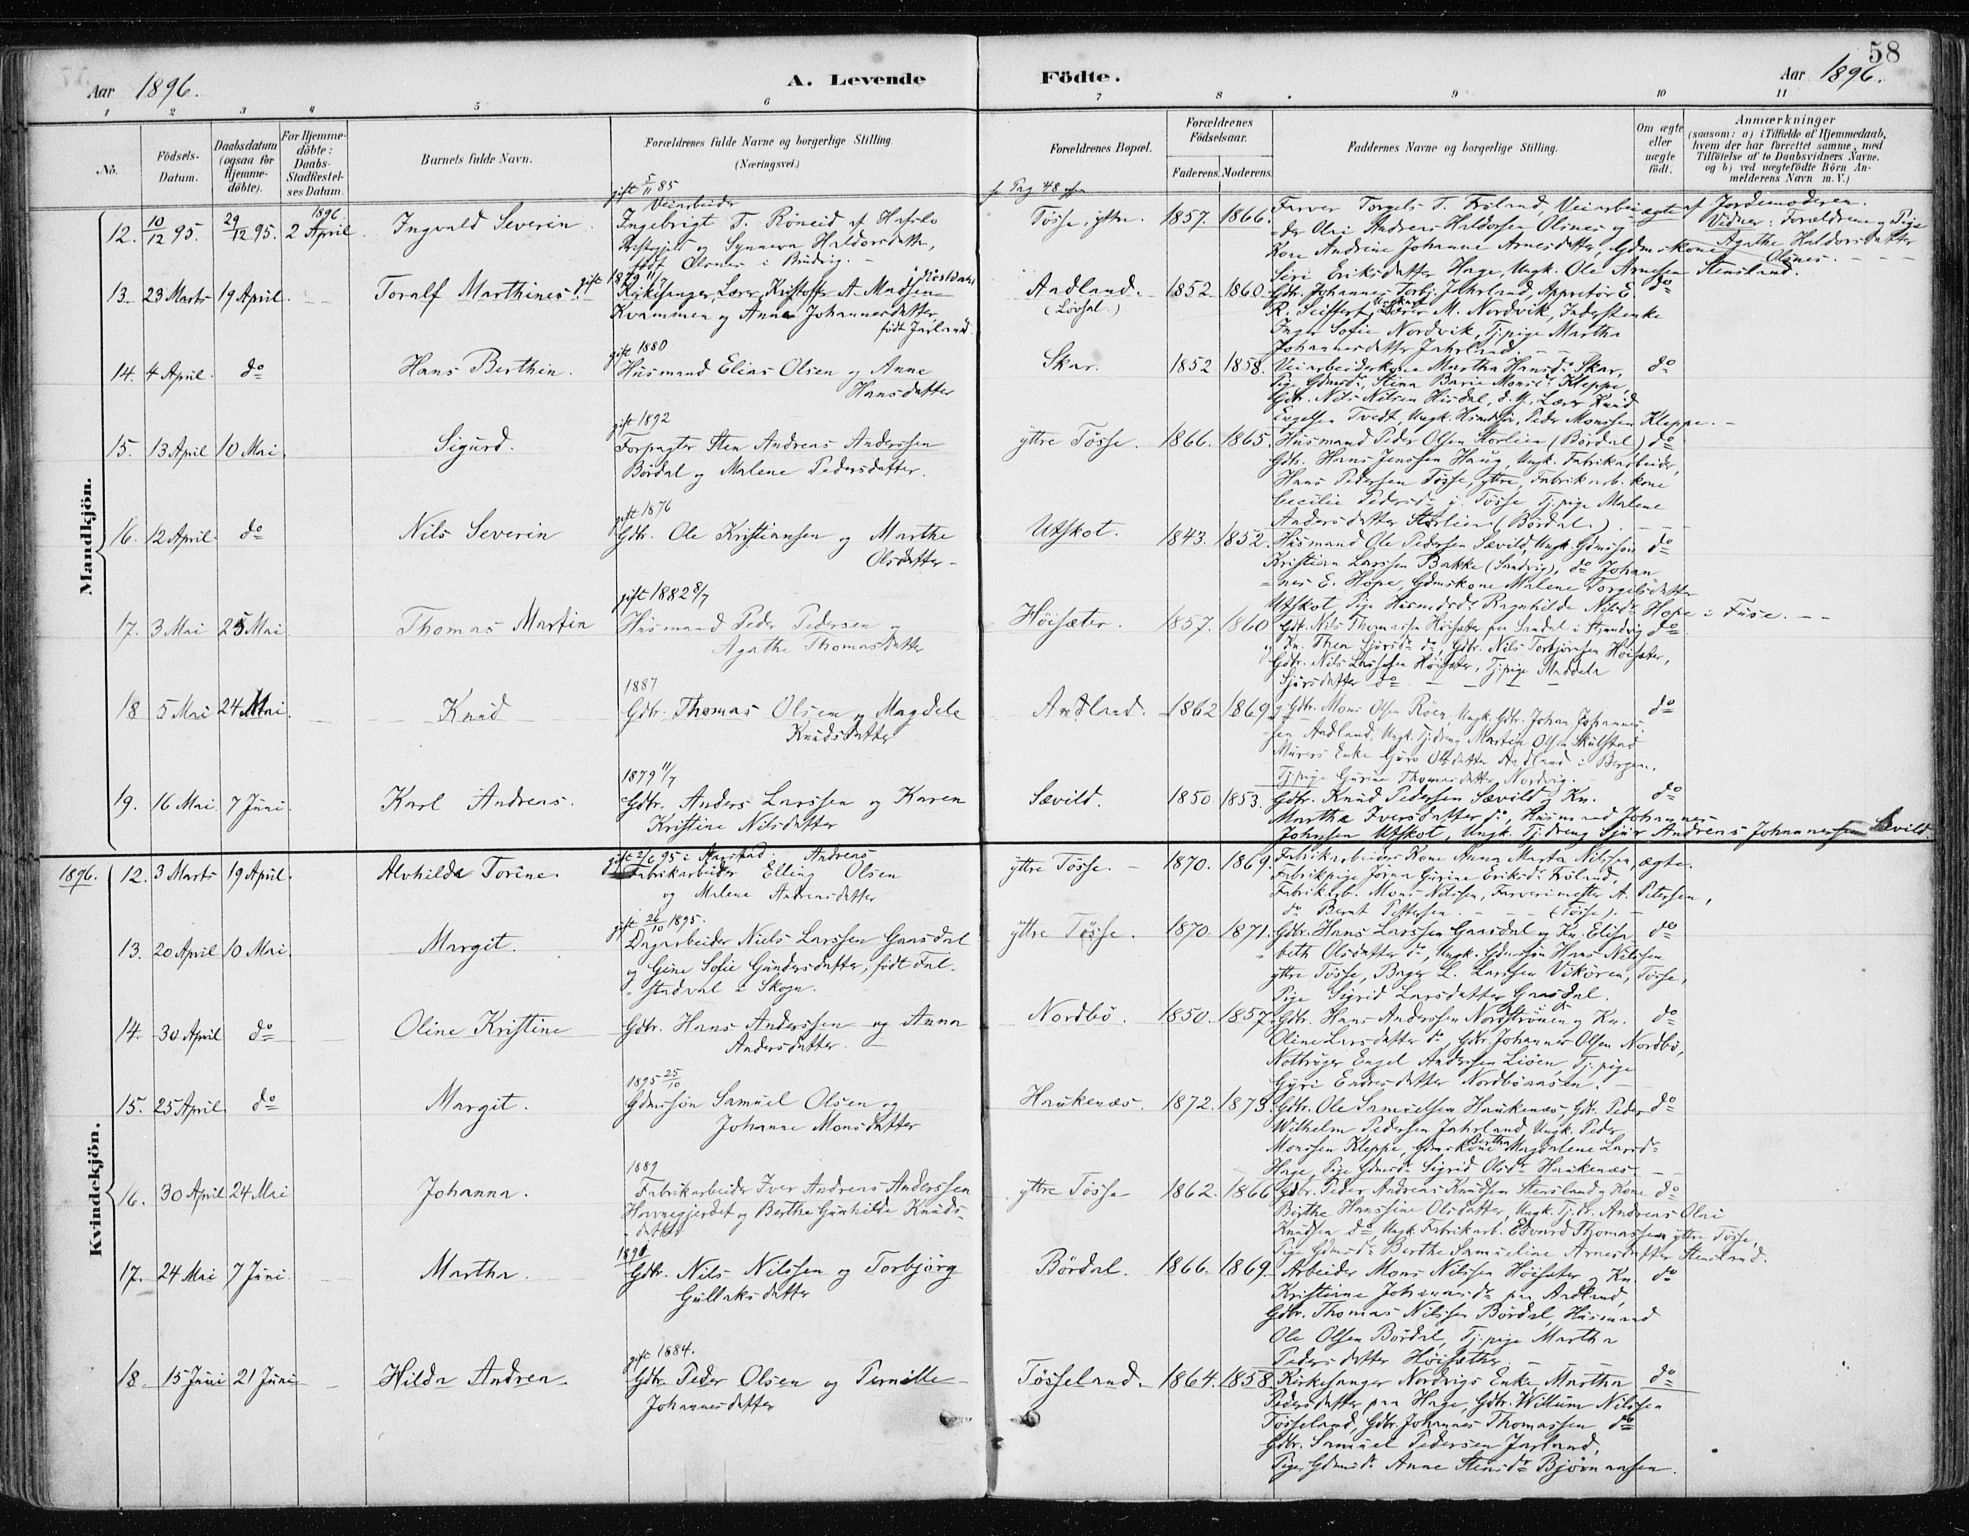 58
Aar 1896. A. Levende Födte. Aar 1896.
1 2 3 4 5 6 7 8 9 10 11
No.
Födsels-
Datum.
Daabsdatum
(ogsaa for
Hjemme-
döbte).
For Hjemme-
döbte:
Daabs-
Stadfæstel-
ses Datum.
Barnets fulde Navn.
Forældrenes fulde Navne og borgerlige Stilling
(Næringsvei.)
Forældrenes Bopæl.
Forældrenes
Födselsaar.
Faderens. Moderens.
Faddernes Navne og borgerlige Stilling.
Om ægte
eller
uægte
födt.
Anmærkninger
(saasom: a) i Tilfælde af Hjemmedaab,
hvem der har forrettet samme, med
Tilföielse af to Daabsvidners Navne,
og b) ved uægtefödte Börn An-
melderens Navn m. V.)
Mandkjön.
12. 10/12 95. 29/12 95. 1896. 2 April. Ingvald Severin.
gift 5/11 85
Veiarbeider
Ingebrigt T. Röneid af Hafslo
Præstgjeld og Synneva Haldorsdatter,
födt Olsnes i Brudvig.
Tösse, ytre. 1857. 1866.
Farver Torgels T. Fröland, Veiarbei-
der Olai Andreas Haldorsen Olsnes og
Kone Andrine Johanne Arnesdatter, Gdmskone
Siri Eriksdatter Hage, Ungk. Ole Arnesen Stensland.
ægte
af Jordemoderen.
Vidner: Forældrene og Pige
Agathe Haldorsdatter
Olsnes.
13. 23 Marts 19 April. Toralf Marthines.
gift 1879 11/7
Kirkesanger, Lærer Kristoffer A. Madsen
Kvammen og Anna Johannesdatter,
födt Jarland.
Aadland.
(Lövsal.)
1852. 1860.
Gdr. Johannes Torbj. Jahrland, Appretör E.
R. Seiffert, Lærer M. Nordvik, Inderstenke
Inger Sofie Nordvik, Tj.pige Martha
Johannesdatter Jahrland.
do
14. 4 April. do Hans Berthin.
gift 1880
Husmand Elias Olsen og Anne
Hansdatter
Skar. 1852 1858.
Veiarbeiderkone Martha Hansd. Skar,
Pige Gdmsd. Stena Barie Monsd. Kleppe,
Gdr. Nils Nilsen Husdal, d. y., Lærer Knud
Engelsen Tvedt, Ungk. Peder Monssen Kleppe.
do
15. 13 April 10 Mai. Sigurd.
gift 1892
Forpagter Sten Andreas Anderssen
Bördal og Malene Pedersdatter.
ytre Tösse. 1866. 1865.
Husmand Peder Olsen Storlien (Bördal)
Gdr. Hans Jenssen Haug, Ungk. Fabrikarbeider,
Hans Pedersen Tösse, ytre, Fabrikarb. kone
Cecilie Pedersd. i Tösse Tj.pige Malene
Andersdatter Storlien (Bördal.)
do
16. 12 April. do Nils Severin
gift 1876
Gdbr. Ole Kristiansen og Marthe
Olsdatter
Utskot. 1843. 1852.
Husmand Ole Pedersen Sævild, Ungk. Gdmssön
Kristian Larssen Bakke (Sandvig), do Johan-
nes E. Hope, Gdmskone Malene Torgelsdatter
Utskot, Pige Husmdsd. Ragnhilde Nilsd. Hope i Fuse.
do
17. 3 Mai 25 Mai Thomas Martin
gift 1882 8/7
Husmand Peder Pedersen og
Agathe Thomasdatter
Höisæter. 1857. 1860
Gdr. Nils Thomassen Höisæter paa Sandal i Strandvig
og Kn. Thea Sjursd. do, Gdbr. Nils Torbjörnsen Höisæter,
Gdbr. Nils Larssen Höisæter, Tj.pige Maddela
Sjursdatter do
do
18 5 Mai 24 Mai. Knud
1887
Gdbr. Thomas Olsen og Magdele
Knudsdatter
Aadland. 1862 1869
Gdbr. Mons Olsen Röen, Ungk. Gdbr. Johan Johannes-
sen Aadland, Ungk. Tj.dreng Martin Olsen Skulstad
Murers Enke Guro Olsdatter Aadland i Bergen,
Tj.pige Gurine Thomasdatter Nordvig.
do
19. 16 Mai 7 Juni. Karl Andreas.
1879 11/7
Gdbr. Anders Larssen og Karen
Kristine Nilsdatter
Sævild. 1850 1853.
Gdbr. Knud Pedersen Sævild og Kn.
Martha Iversdatter do, Husmand Johannes
Johnsen Utskot, Ungk. Tj.dreng Sjur Andreas Johannessen Sævild.
do
Kvindekjön.
1896. 12. 3 Marts 19 April. Alvhilde Torine.
gift 2/6 95
Fabrikarbeider Elling Andreas Olsen
og Malene Andreasdatter
ytre Tösse. 1870. 1869.
Fabrikarbeiders Kone Anna Marta Nilssen,
Fabrikpige Jorna Gurine Eriksd. Röland,
Fabrikarb. Mons Nilssen, Farverimester A. Petersen,
do Bernt Pettersen (Tösse).
ægte.
13. 20 April 10 Mai. Margit.
gift 26/10 1895.
Dagarbeider Niels Larssen Gaasdal
og Gine Sofie Gundersdatter, födt Fal-
stadval i Skogn.
ytre Tösse. 1870. 1871.
Gdbr. Hans Larssen Gaasdal og Kn. Elisa-
beth Olsdatter do, Ungk. Gdmssön Hans Nilssen
ytre Tösse, Bager L. Larssen Vikören, Tösse,
Pige Sigrid Larsdatter Gaasdal.
do
14. 30 April do Oline Kristine
Gdbr. Hans Anderssen og Anna
Andersdatter.
Nordbö. 1850. 1857.
Gdbr. Hans Anderssen Nordströnen og Kn.
Oline Larsdatter do, Gdbr. Johannes Olsen Nordbö,
Notbruger Engel Andersen Liöen, Tj.pige
Guri Endresdatter Nordböaasen.
do
15. 25 April. do Margit.
1895 25/10
Gdmssön Samuel Olsen og
Johanne Monsdatter
Haukenæs. 1872. 1873.
Gdbr. Ole Samuelsen Haukenæs, Gdr. Peder
Wilhelm Pedersen Jahrland, Ungk. Peder
Monssen Kleppe, Gdmskone Bertha Magdalene Larsd.
Hage, Pige Gdmsd. Sigrid Olsd. Haukenæs
do
16. 30 April 24 Mai Johanna.
1889
Fabrikarbeider Iver Andreas Anderssen
Hovnegjerdet og Berthe Gunhilde Knuds-
datter
ytre Tösse 1862. 1866
Gdbr. Peder Andreas Knudsen Stensland og Kone
Birthe Hanssine Olsdatter, Ungk. Tj.dr. Andreas Olai
Knudsen do, Ungk. Fabrikarb. Edvard Thomassen ytre Tösse,
Pige Gdmsd. Berthe Samueline Arnesdatter Stensland.
do
17. 24 Mai 7 Juni. Martha.
1891
Gdbr. Nils Nilssen og Torbjörg
Gullaksdatter
Bördal. 1866. 1869.
Arbeider Mons Nilssen Höisæter og Kn.
Kristine Johannesd. paa Aadland,
Gdbr. Thomas Nilssen Bördal, Husmand
Ole Olsen Bördal, Tj.pige Martha
Pedersdatter Höisæther.
do
18 15 Juni 21 Juni Hilda Andrea.
gift 1884.
Gdbr. Peder Olsen og Pernille
Johannesdatter
Tösseland. 1864. 1858.
Kirkesanger Nordvigs Enke Martha
Pedersdatter paa Hage, Gdbr. Willum Nilssen
Tösseland, Gdbr. Johannes Thomassen do
Gdbr. Samuel Pedersen Jarland,
Pige Gdmsd. Anne Stensd. Björnaasen.
do